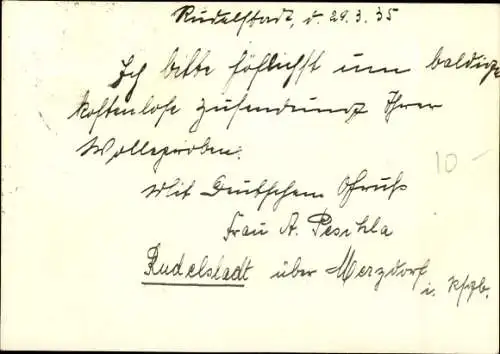 Rudelstadt, d. 29.3.35
Ich bitte höflichst um baldige
kostenlose Zusendung Ihrer
Wolleproben.
Mit Deutschem Gruß
Frau A. Peschla
Rudelstadt über Merzdorf
i. Rsgb.
10 -